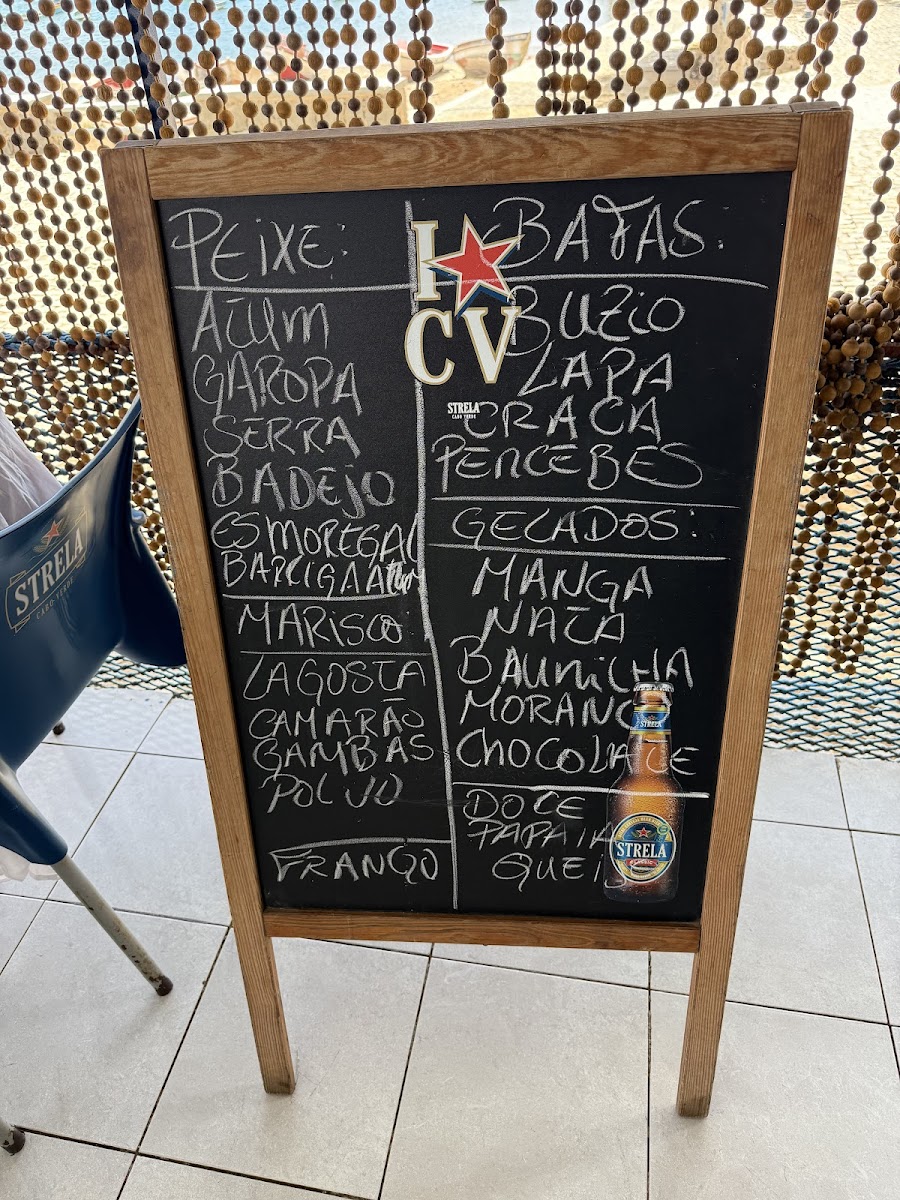 PEIXE:
ATUM
GAROPA
SERRA
BADEJO
ESMOREGAL
BARRIGA ATUM
MARISCO
LAGOSTA
CAMARÃO
GAMBAS
POLVO
FRANGO
I ★
CV
STRELA
CABO VERDE
BAFAS:
BUZIO
LAPA
CRACA
PERCEBES
GELADOS:
MANGA
NATA
BAUNILHA
MORANG
CHOCOLATE
DOCE
PAPAIA
QUEIJ
STRELA
STRELA
STRELA
CABO VERDE